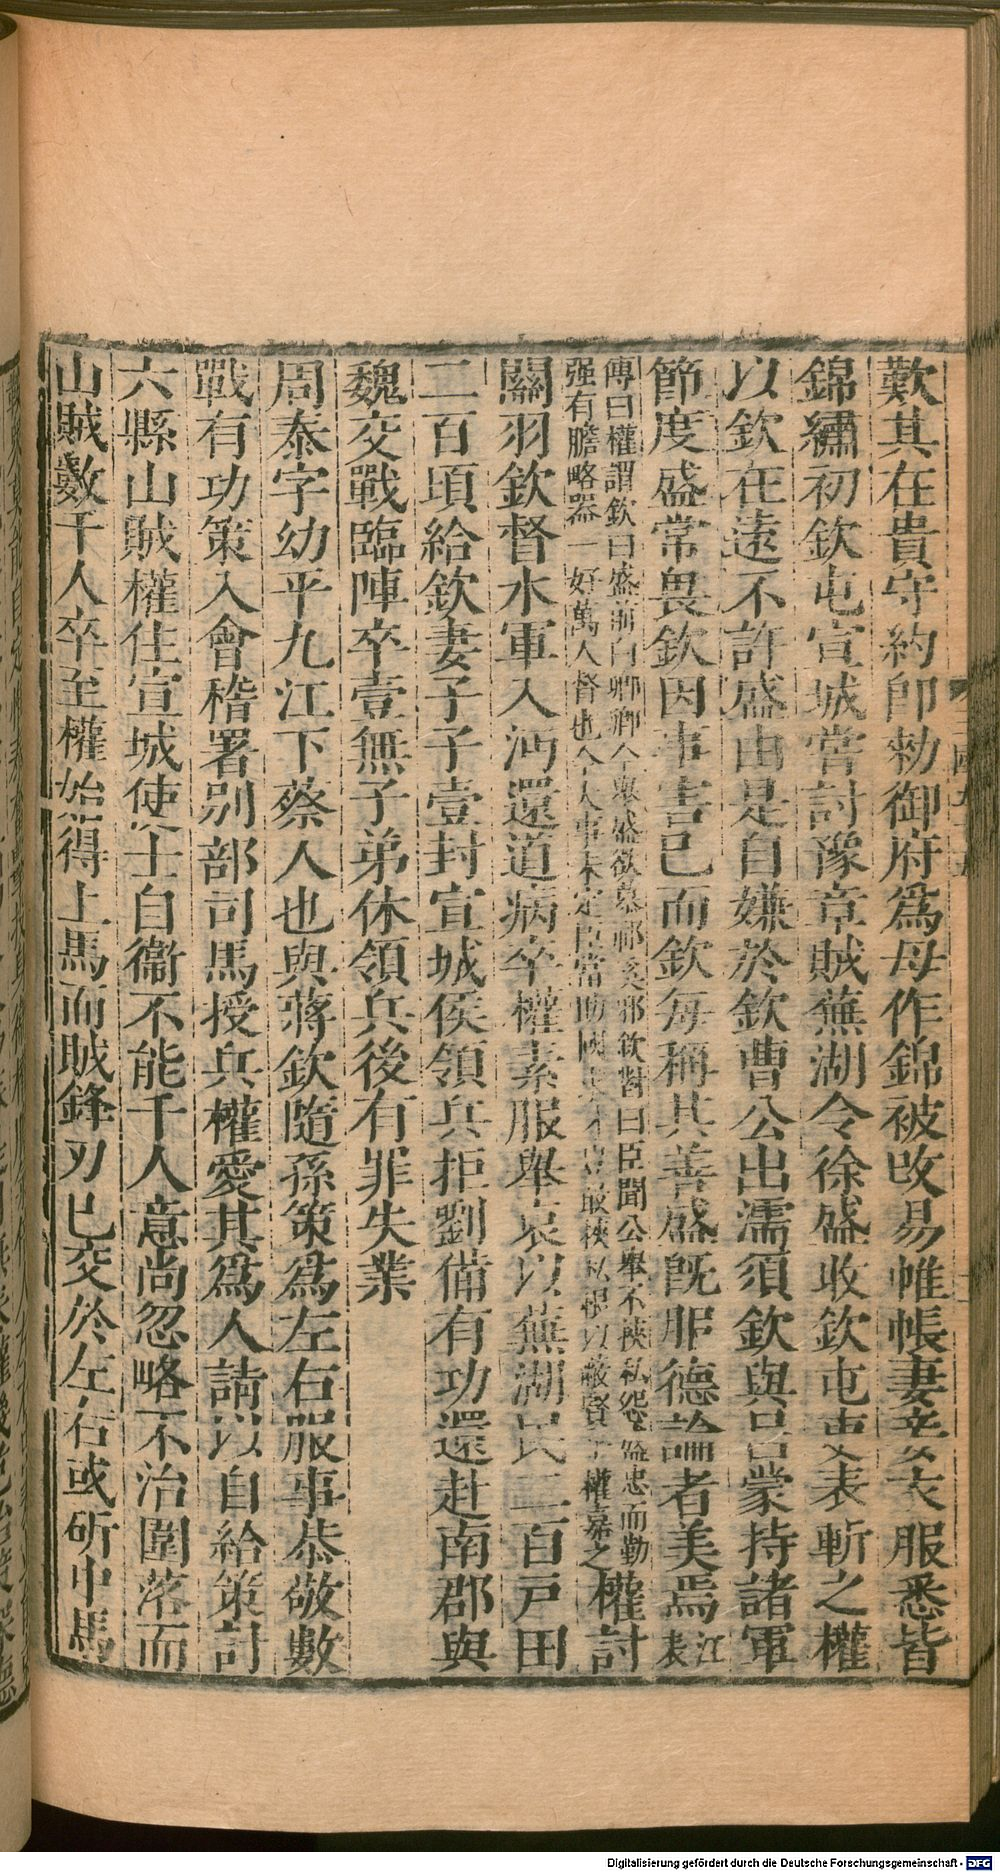 歎其在貴守約卽勑御府爲母作錦被改易帷帳妻妾衣服悉皆
錦繡初欽屯宣城嘗討豫章賊蕪湖令徐盛收欽屯吏表斬之權
以欽在遠不許盛由是自嫌於欽曹公出濡須欽與呂蒙持諸軍
節度盛常畏欽因事害已而欽每稱其善盛旣服德論者美焉江表
傳曰權謂欽曰盛前白卿卿今舉盛欲慕祁奚邪欽對曰臣聞公舉不挾私怨盛忠而勤
强有膽略器一好萬人督也今大事未定臣當助國求才豈敢挾私恨以蔽賢乎權嘉之權討
關羽欽督水軍入沔還道病卒權素服舉哀以蕪湖民二百戶田
二百頃給欽妻子子壹封宣城侯領兵拒劉備有功還赴南郡與
魏交戰臨陣卒壹無子弟休領兵後有罪失業
周泰字幼平九江下蔡人也與蔣欽隨孫策爲左右服事恭敬數
戰有功策入會稽署別部司馬授兵權愛其爲人請以自給策討
六縣山賊權住宣城使士自衞不能千人意尚忽略不治圍落而
山賊數千人卒至權始得上馬而賊鋒刃已交於左右或斫中馬
Digitalisierung gefördert durch die Deutsche Forschungsgemeinschaft - DFG